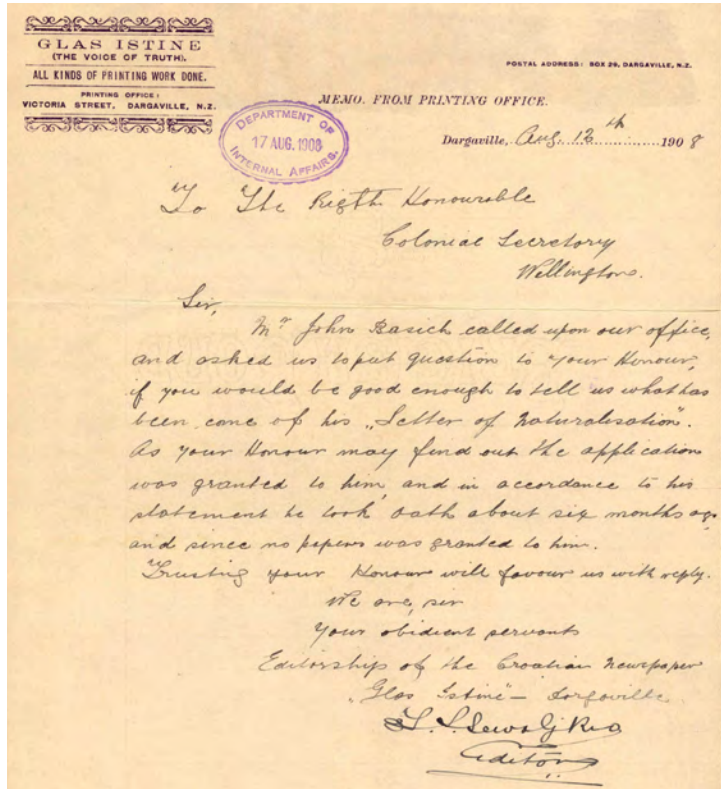 GLAS ISTINE
(THE VOICE OF TRUTH).
ALL KINDS OF PRINTING WORK DONE.
PRINTING OFFICE:
VICTORIA STREET, DARGAVILLE, N.Z.
POSTAL ADDRESS: BOX 29, DARGAVILLE, N.Z.
MEMO. FROM PRINTING OFFICE.
DEPARTMENT OF
17 AUG. 1908
INTERNAL AFFAIRS.
Dargaville, Aug. 12th 1908
To The Rigth Honourable
Colonial Secretory
Wellington.
Sir,
Mr John Basich called upon our office,
and asked us to put question to your Honour,
if you would be good enough to tell us what has
been come of his „Letter of Naturalisation".
As your Honour may find out the application
was granted to him, and in accordance to his
statement he took oath about six months ago,
and since no papers was granted to him.
Trusting your Honour will favour us with reply.
We are, sir
Your obidient servants
Editorship of the Croatian Newspaper
„Glas Istine" – Dargaville.
Editor